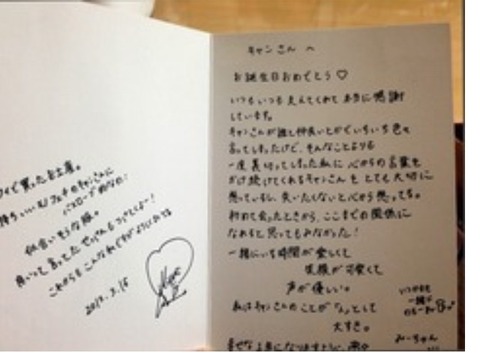 イで買ったお土産。
持ちいいもフェチのキャンさんに
似合いそうな服。
これからもこんな私ですがよろしくね
2017.2.16
キャンさんへ
お誕生日おめでとう♡
いつもいつも支えてくれて本当に感謝
しています。
キャンさんが誰と仲良いとかでいちいち色々
言ってしまったけど、そんなことよりも
一度裏切ってしまった私に心からの言葉を
かけ続けてくれるキャンさんをとても大切に
想っているし、失いたくないと心から想ってる。
初めて会ったときから、ここまでの関係に
なれると思ってもみなかった!
一緒にいる時間が楽しくて
笑顔が可愛くて
声が優しい。
私はキャンさんのことが
大好き。
いつまでも
一緒に
みーちゃん